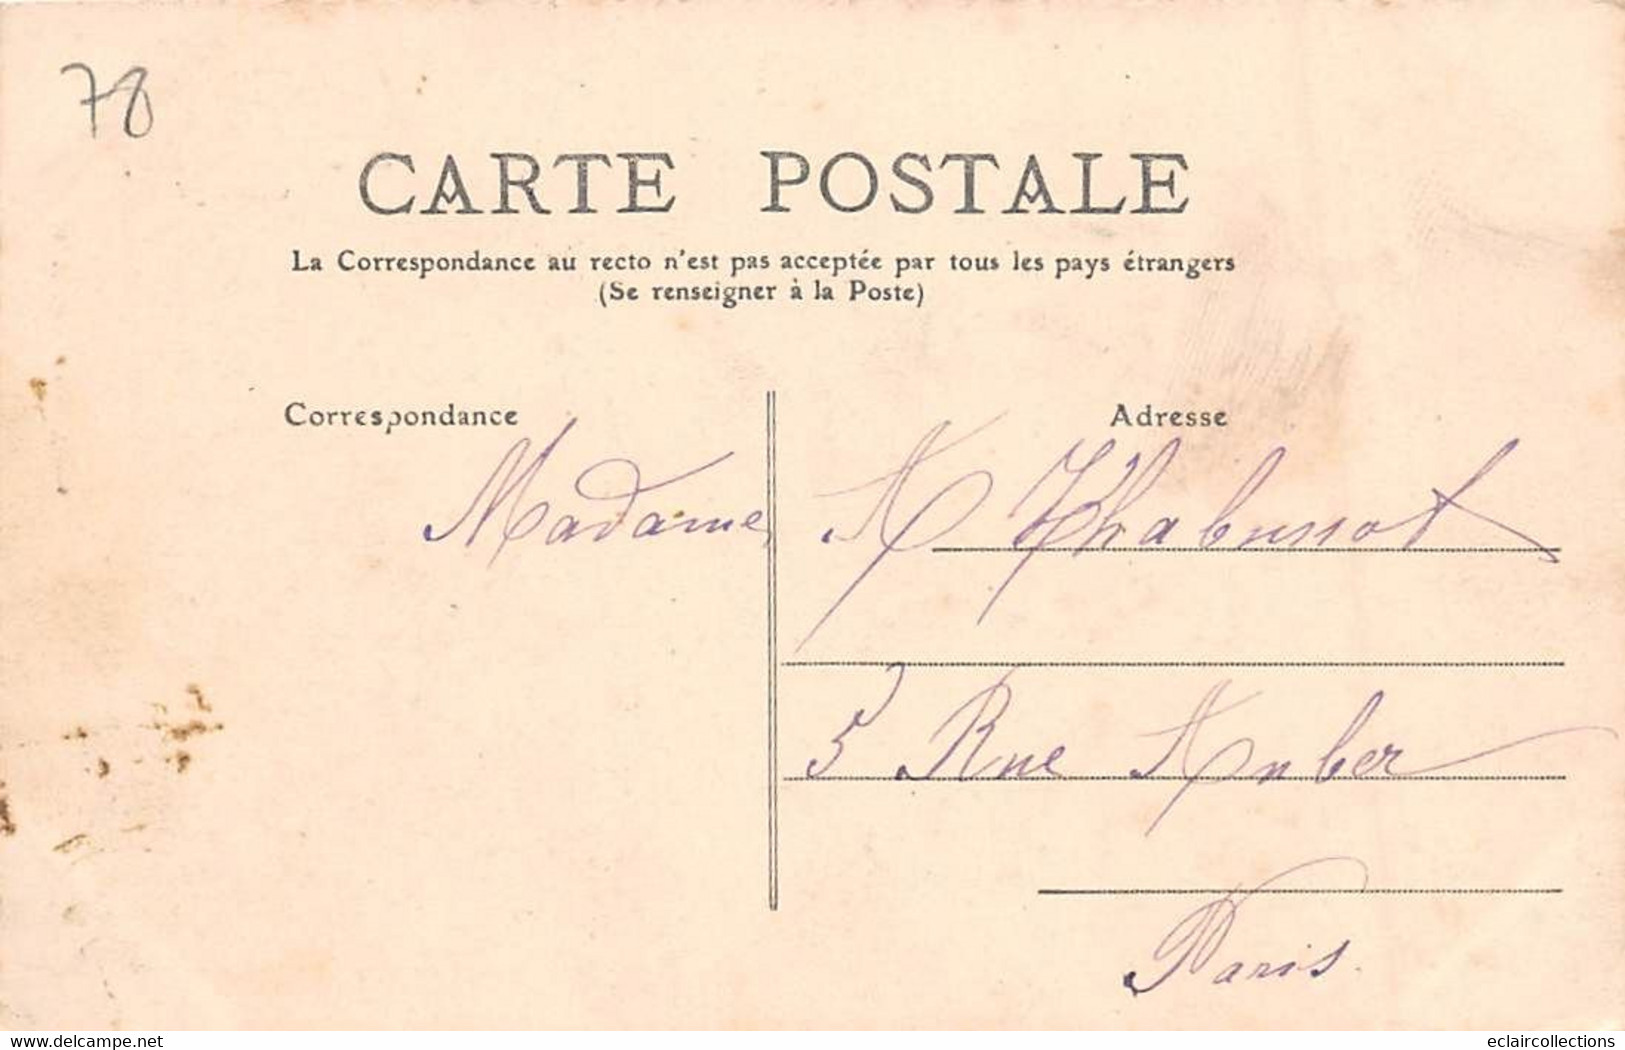 78
CARTE POSTALE
La Correspondance au recto n'est pas acceptée par tous les pays étrangers
(Se renseigner à la Poste)
Correspondance
Adresse
Madame A
5 Rue Auber
Paris.
delcampe.net
eclaircollections